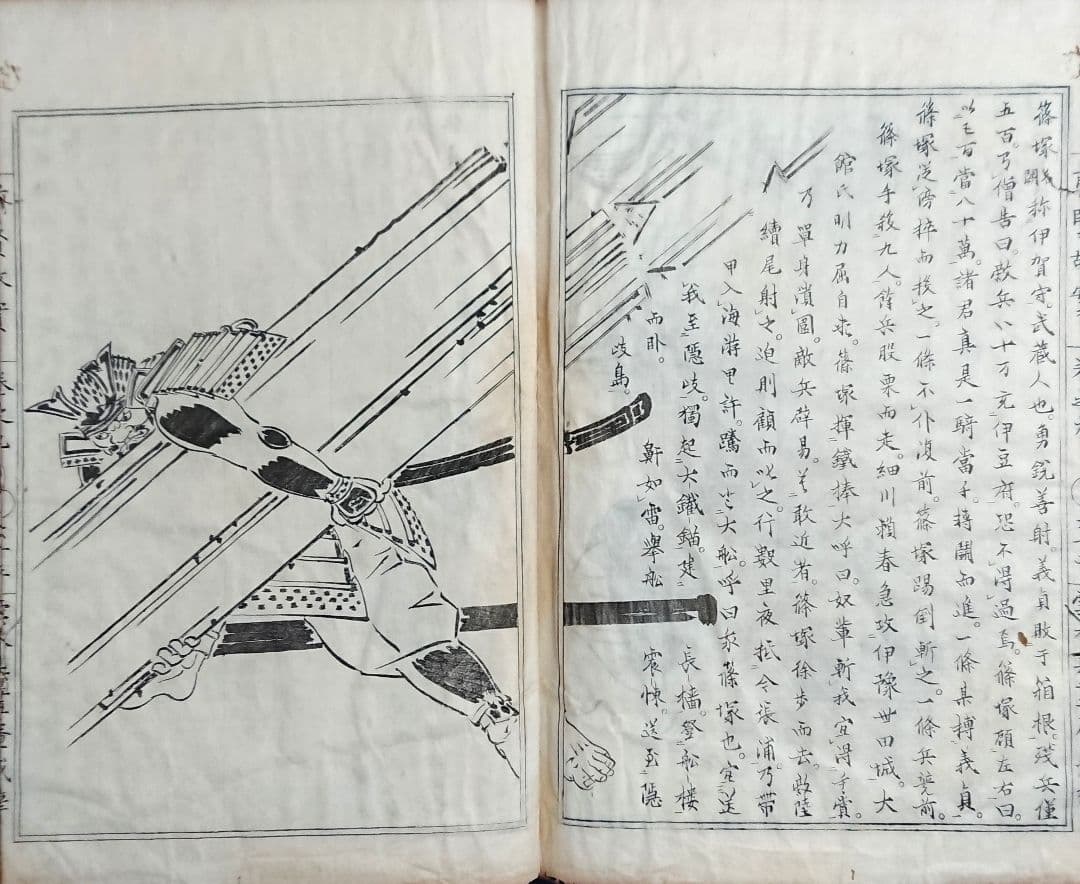 篠塚闕称伊賀守。武蔵人也。勇鋭善射。義貞敗于箱根。残兵僅
五百。乃僧告曰。敵兵八十万充伊豆府。恐不得過焉。篠塚顧左右曰。
以五百當八十萬。諸君真是一騎當千。轉鬪而進。一條某搏義貞。
篠塚從傍捽而投之。一條不仆復前。篠塚踢倒斬之。一條兵競前。
篠塚手殺九人。餘兵股栗而走。細川頼春急攻伊豫世田城。大
館氏明力屈自尽。篠塚揮鐵棒大呼曰。奴輩斬我宜得重賞。
乃單身潰圍。敵兵辟易。莫敢近者。篠塚徐歩而去。敵陸
續尾射之。迫則顧而叱之。行數里夜抵今張浦。乃帶
甲入海游里許。騰而上大舩。呼曰我篠塚也。宜送
我至隠岐。獨起大鐵錨。建長檣。登舩樓
而卧。鼾如雷。舉舩震悚。送至隠
岐島。